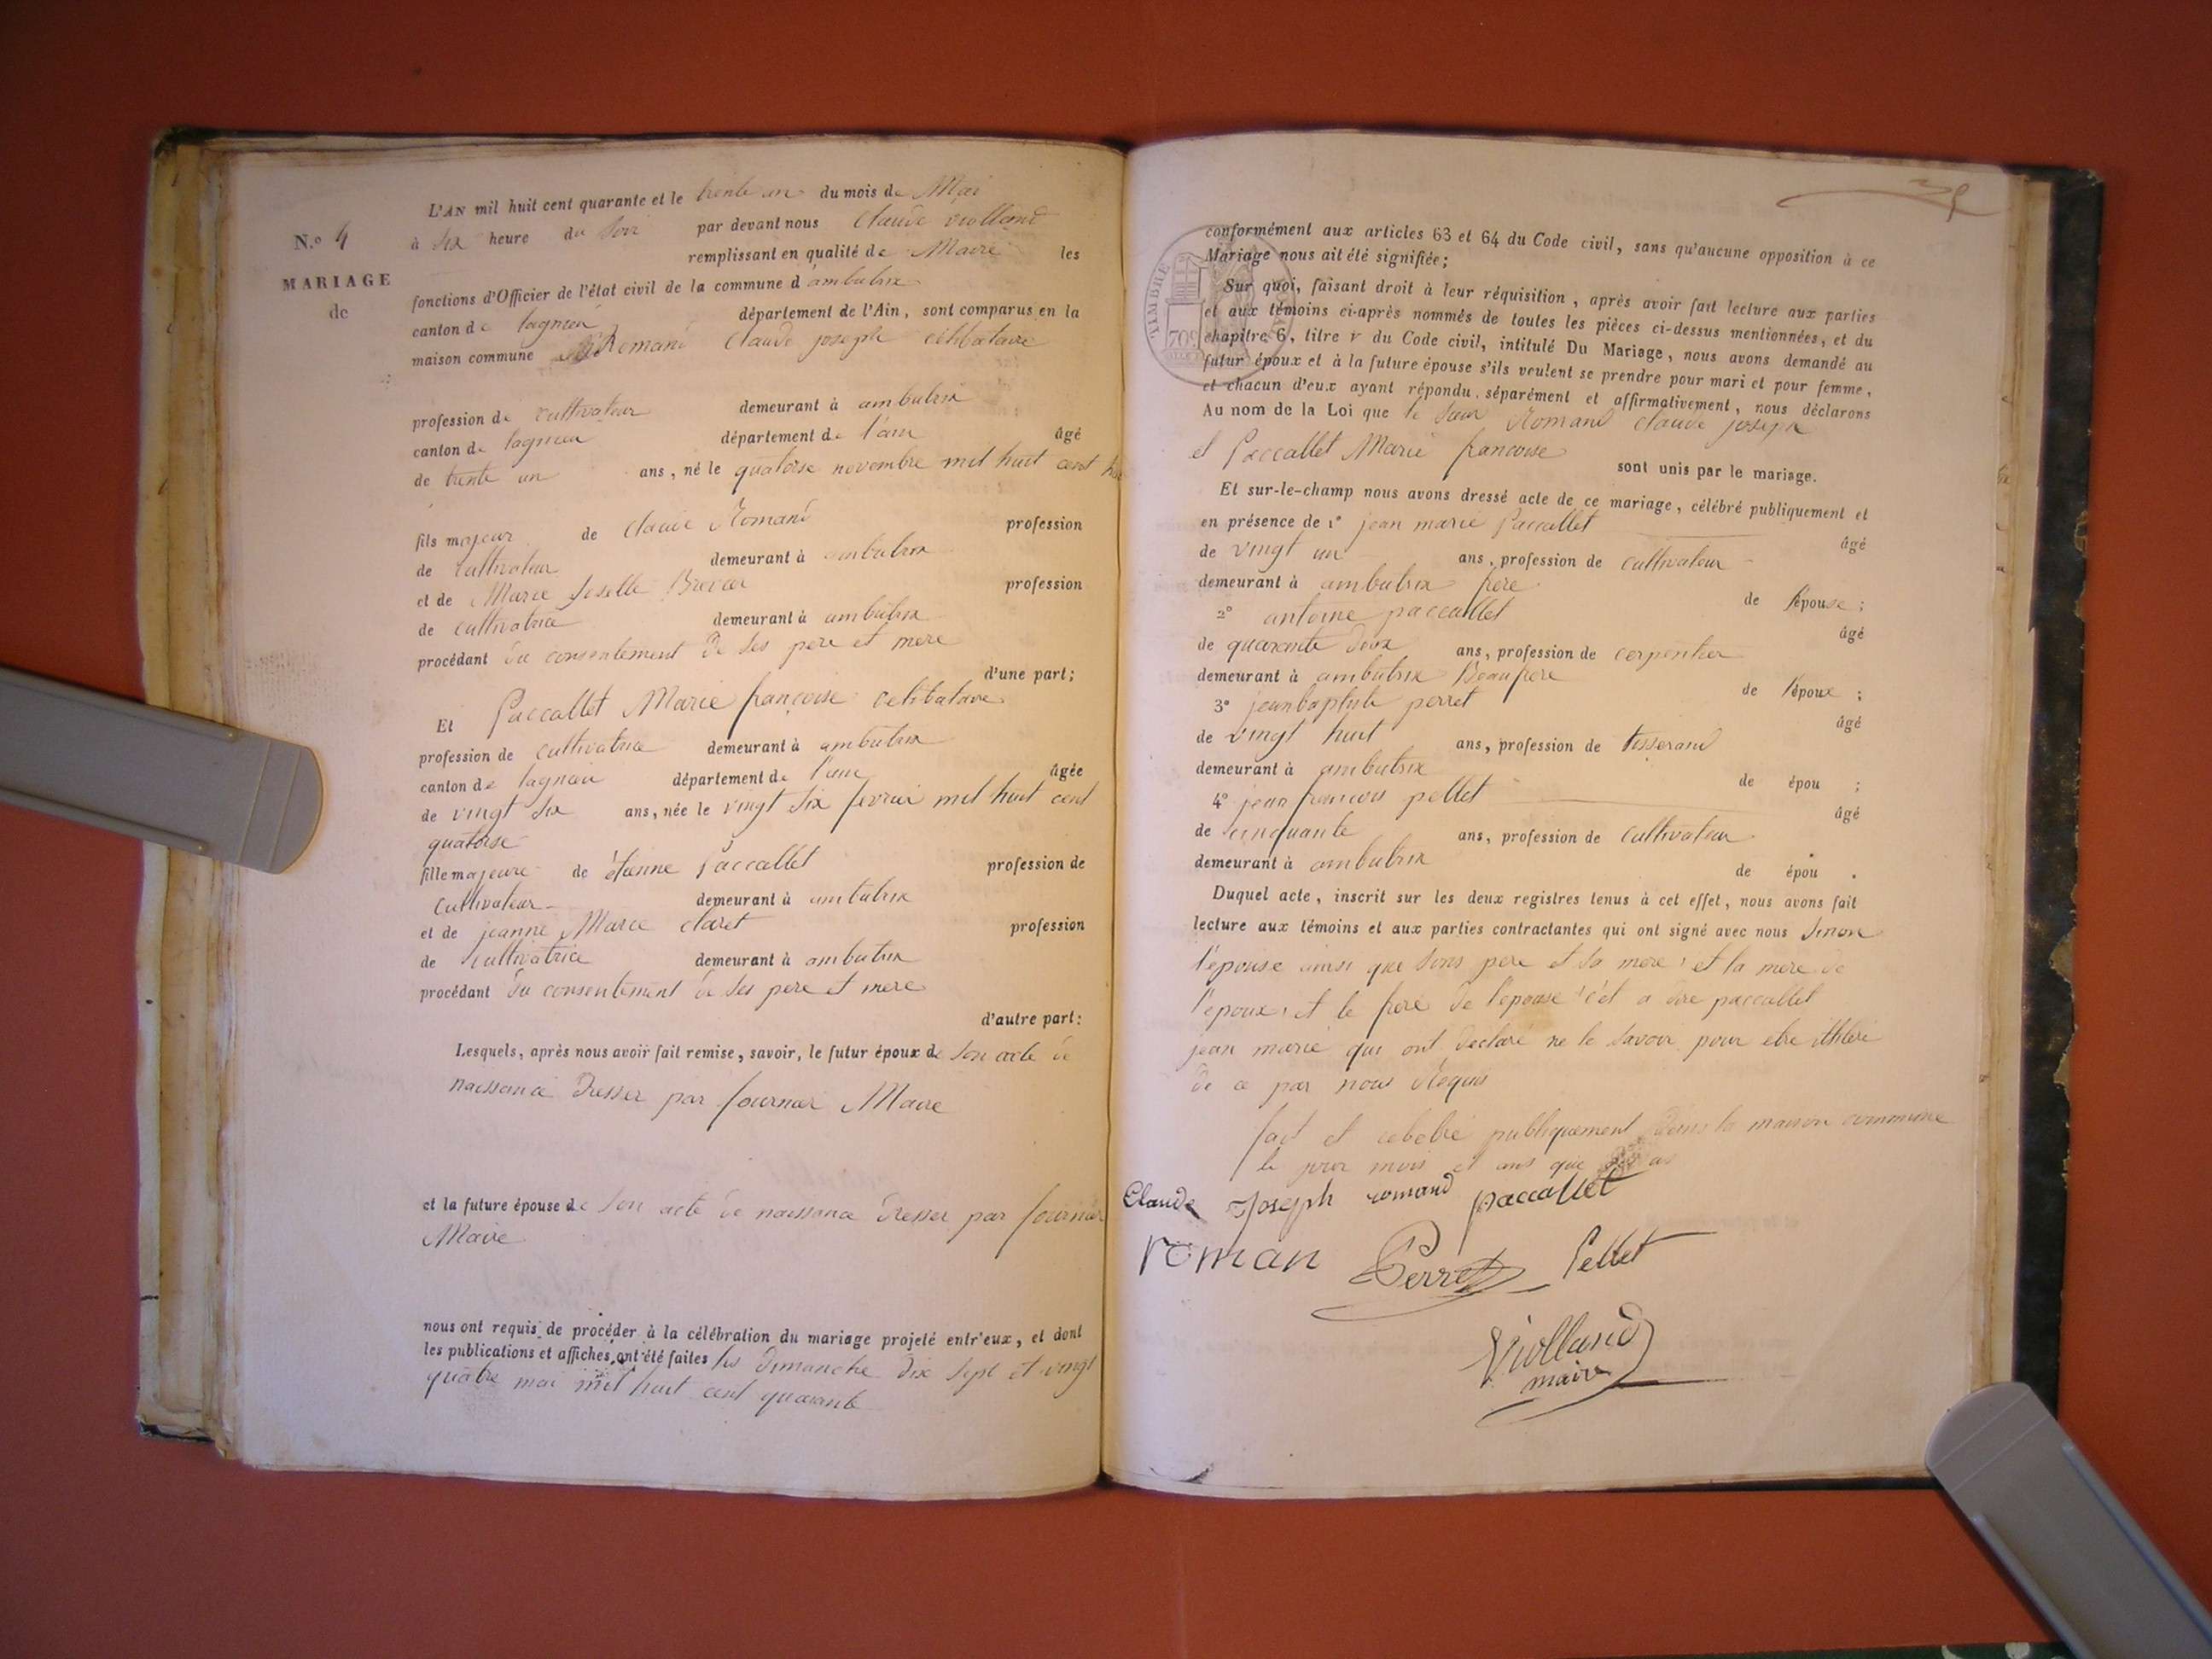 L'AN mil huit cent quarante et le trente un du mois de Mai
N.° 4
à six heure du soir par devant nous Claude violland
remplissant en qualité de Maire les
MARIAGE
de
fonctions d'Officier de l'état civil de la commune d'ambutrix
canton de lagnieu département de l'Ain, sont comparus en la
maison commune Romand Claude joseph célibataire
profession de cultivateur demeurant à ambutrix
canton de lagnieu département de l'ain âgé
de trente un ans, né le quatorse novembre mil huit cent
fils majeur de Claude Romand profession
de cultivateur demeurant à ambutrix
et de Marie profession
de cultivatrice demeurant à ambutrix
procédant du consentement de ses pere et mere
d'une part;
Et Paccallet Marie françoise celibataire
profession de cultivatrice demeurant à ambutrix
canton de lagnieu département de l'ain âgée
de vingt six ans, née le vingt six fevrier mil huit cent
quatorse
fille majeure de étienne paccallet profession de
cultivateur demeurant à ambutrix
et de jeanne Marie claret profession
de cultivatrice demeurant à ambutrix
procédant du consentement de ses pere et mere
d'autre part:
Lesquels, après nous avoir fait remise, savoir, le futur époux de son acte de
naissance dresser par fournier Maire
et la future épouse de son acte de naissance dresser par fournier
Maire
nous ont requis de procéder à la célébration du mariage projeté entr'eux, et dont
les publications et affiches ont été faites les dimanche dix sept et vingt
quatre mai mil huit cent quarante
TIMBRE
conformément aux articles 63 et 64 du Code civil, sans qu'aucune opposition à ce
Mariage nous ait été signifiée;
Sur quoi, faisant droit à leur réquisition, après avoir fait lecture aux parties
et aux témoins ci-après nommés de toutes les pièces ci-dessus mentionnées, et du
chapitre 6, titre v du Code civil, intitulé Du Mariage, nous avons demandé au
futur époux et à la future épouse s'ils veulent se prendre pour mari et pour femme,
et chacun d'eux ayant répondu séparément et affirmativement, nous déclarons
Au nom de la Loi que le sieur Romand claude joseph
et Paccallet Marie francoise
sont unis par le mariage.
Et sur-le-champ nous avons dressé acte de ce mariage, célébré publiquement et
en présence de 1° jean marie paccallet âgé
de vingt un ans, profession de cultivateur
demeurant à ambutrix frere de l'épouse;
2° antoine paccallet âgé
de quarente deux ans, profession de cerpentier
demeurant à ambutrix Beaufrere de l'époux;
3° jeanbaptiste perret âgé
de vingt huit ans, profession de tisserand
demeurant à ambutrix de épou ;
4° jean francois pellet âgé
de cinquante ans, profession de cultivateur
demeurant à ambutrix de épou .
Duquel acte, inscrit sur les deux registres tenus à cet effet, nous avons fait
lecture aux témoins et aux parties contractantes qui ont signé avec nous sinon
l'epouse ainsi que sons pere et sa mere et la mere de
l'epoux et le frere de l'epouse c'et a dire paccallet
jean marie qui ont declaré ne le savoir pour etre
de ce par nous Requis
fait et celebré publiquement dans la maison commune
le jour mois et ans que
Claude Joseph romand paccallet
roman Perret Pellet
Violland
maire